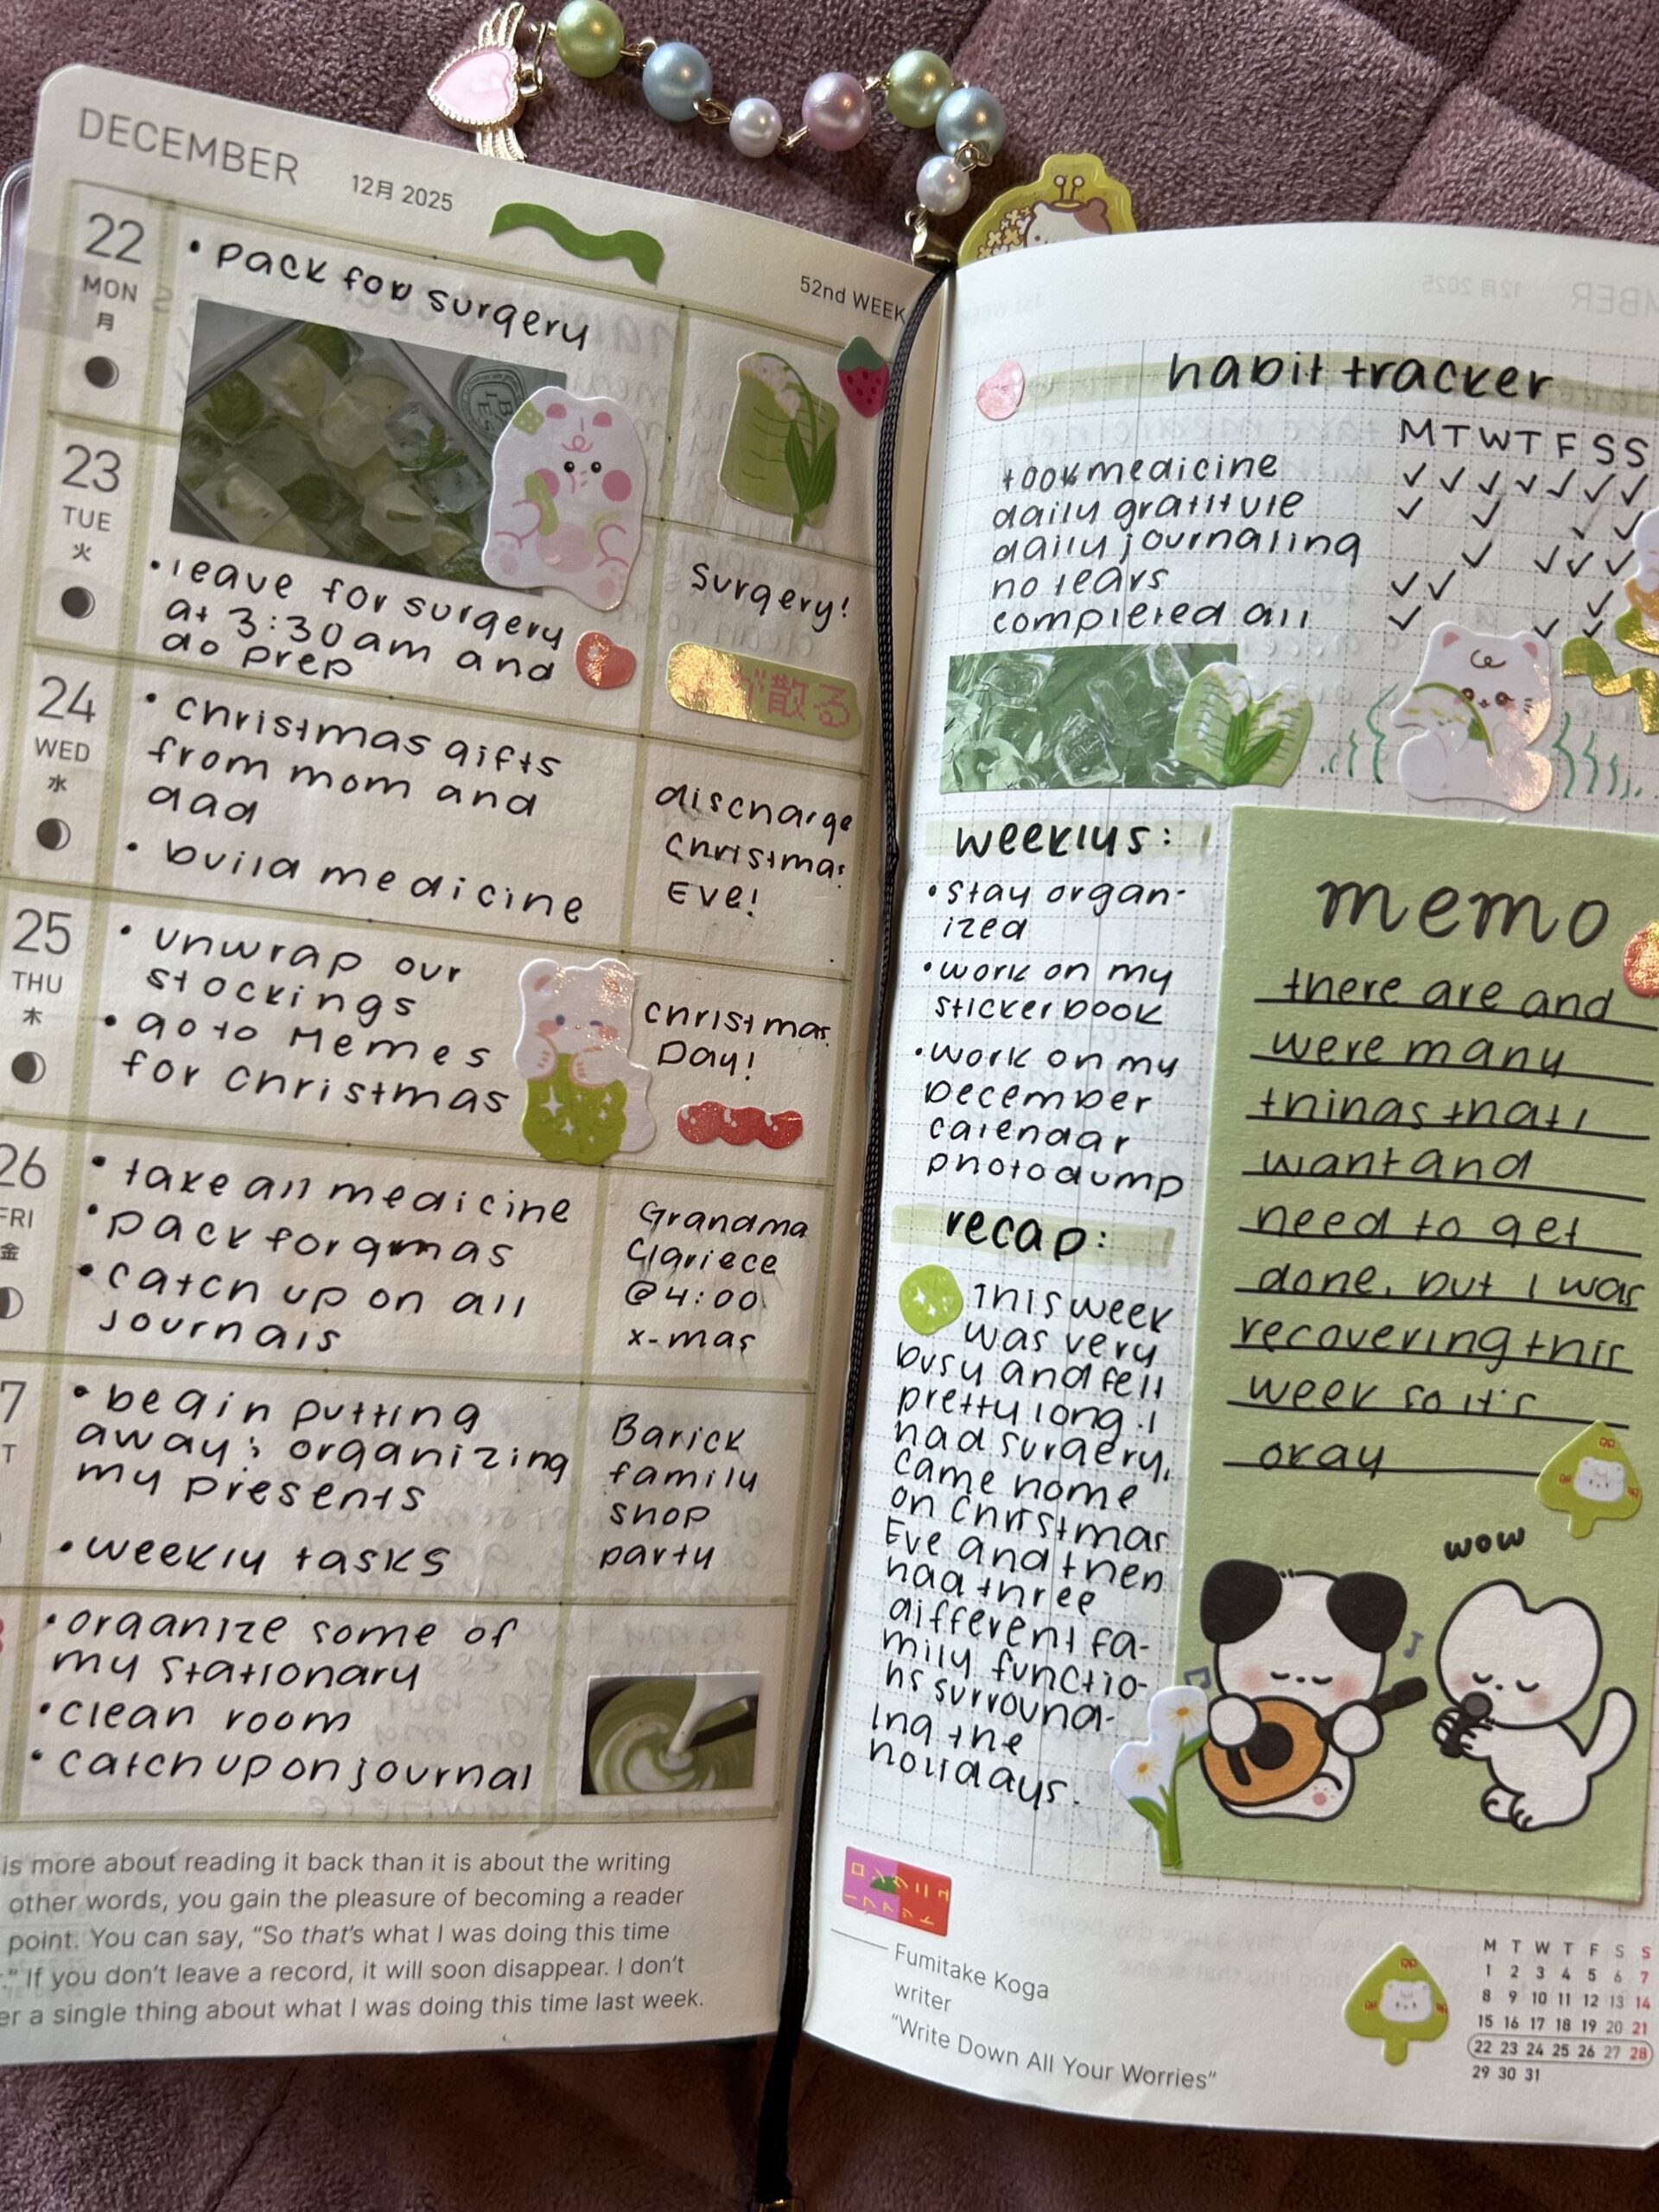 DECEMBER
12月 2025
52nd WEEK
22
MON
月
• pack for surgery
23
TUE
火
• leave for surgery
at 3:30 am and
do prep
surgery!
が散る
24
WED
水
• christmas gifts
from mom and
dad
• build medicine
discharge
Christmas
Eve!
25
THU
木
• unwrap our
stockings
• go to Memes
for christmas
christmas
Day!
26
FRI
金
• take all medicine
• pack for gmas
• catch up on all
journals
Grandma
Clariece
@ 4:00
x-mas
7
T
• begin putting
away & organizing
my presents
• weekly tasks
Barick
family
shop
party
• organize some of
my stationary
• clean room
• catch up on journal
is more about reading it back than it is about the writing
other words, you gain the pleasure of becoming a reader
point. You can say, “So that’s what I was doing this time
.” If you don’t leave a record, it will soon disappear. I don’t
er a single thing about what I was doing this time last week.
habit tracker
M T W T F S S
took medicine ✓ ✓ ✓ ✓ ✓ ✓ ✓
daily gratitude ✓ ✓ ✓ ✓
daily journaling ✓ ✓ ✓ ✓
no tears ✓ ✓ ✓
completed all ✓ ✓ ✓
weeklys:
• stay organ-
ized
• work on my
sticker book
• work on my
December
calendar
photo dump
recap:
This week
was very
busy and felt
pretty long. I
had surgery,
came home
on Christmas
Eve and then
had three
different fa-
mily functio-
ns surround-
ing the
holidays.
memo
there are and
were many
things that I
want and
need to get
done, but I was
recovering this
week so it's
okay
wow
Fumitake Koga
writer
“Write Down All Your Worries”
M T W T F S S
1 2 3 4 5 6 7
8 9 10 11 12 13 14
15 16 17 18 19 20 21
22 23 24 25 26 27 28
29 30 31